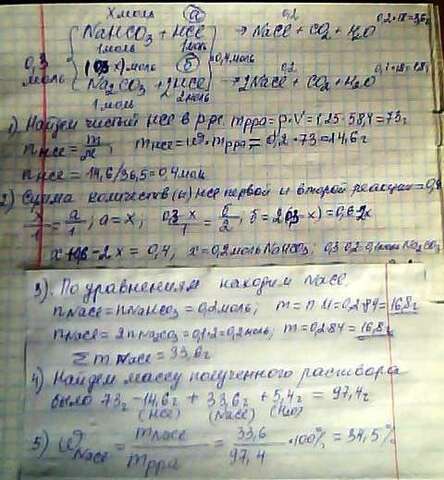 X моль (а) 0,2
NaHCO3 + HCl → NaCl + CO2 + H2O 0,2·18=3,6г
1моль 1моль
0,3 моль (0,3 x) моль (б) 0,4моль 0,2 0,1·18=1,8г
Na2CO3 + 2HCl → 2NaCl + CO2 + H2O
1моль 2моль
1) Найдем чистый HCl в р-ре. mрра = ρ·V = 1,25·58,4 = 73г
nHCl = m/M; mHCl = ω·mрра = 0,2·73 = 14,6г
nHCl = 14,6/36,5 = 0,4моль
2) Сумма количеств (n) HCl первой и второй реакции =0,4
x/1 = a/1; a = x; 0,3-x/1 = б/2; б = 2(0,3-x) = 0,6-2x
x + 0,6 - 2x = 0,4, x = 0,2моль NaHCO3; 0,3-0,2=0,1моль Na2CO3
3). По уравнениям находим NaCl
nNaCl = nNaHCO3 = 0,2моль; m = n·M = 0,2·84 = 16,8г
nNaCl = 2nNa2CO3 = 0,1·2 = 0,2моль; m = 0,2·84 = 16,8г
∑ m NaCl = 33,6г
4) Найдем массу полученного раствора
было 73г - 14,6г + 33,6г + 5,4г = 97,4г
(HCl) (NaCl) (H2O)
5) ωNaCl = mNaCl/mрра = 33,6/97,4 ·100% = 34,5%